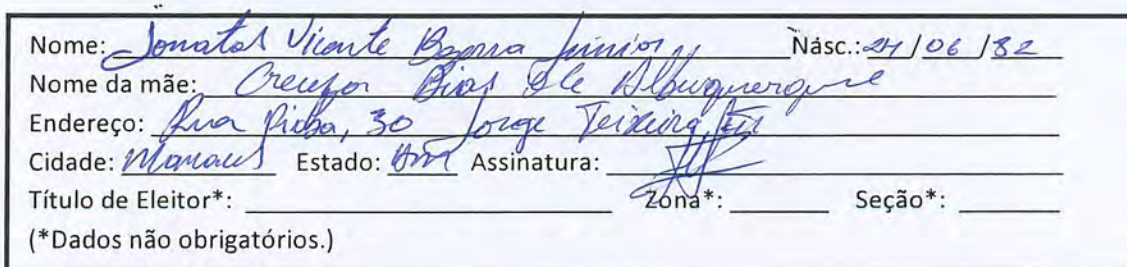 Nome: Jonatas Vicente Bezerra Júnior Nasc.: 24/06/82
Nome da mãe: Creuza Dias de Albuquerque
Endereço: Rua Piaba, 30 Jorge Teixeira
Cidade: Manaus Estado: Am Assinatura:
Título de Eleitor*: Zona*: Seção*:
(*Dados não obrigatórios.)